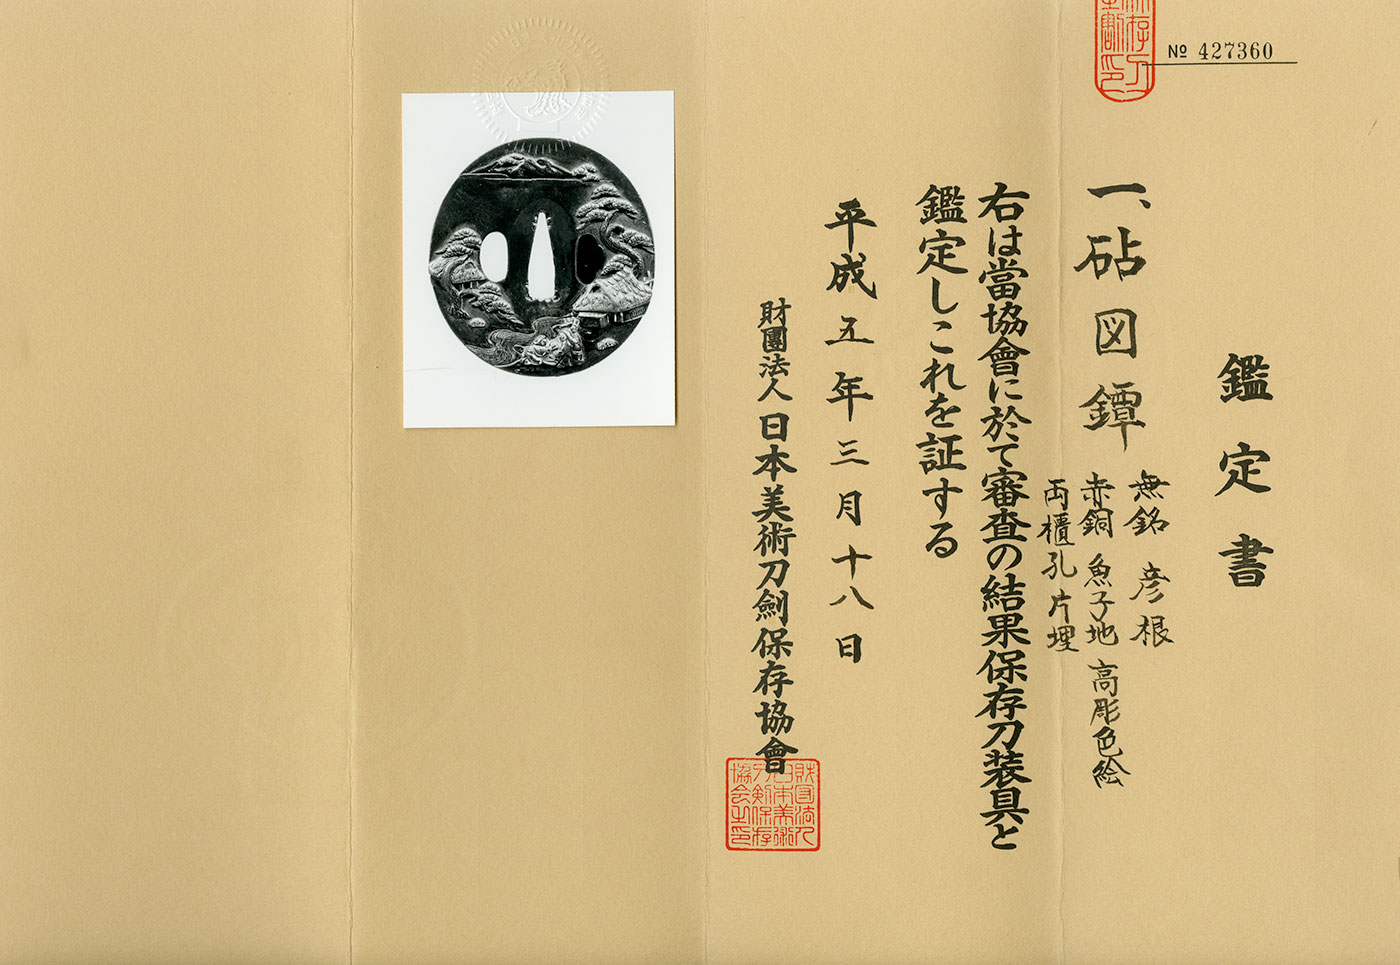 № 427360
鑑定書
一、砧図鐔
無銘 彦根
赤銅 魚子地 高彫色絵
両櫃孔片埋
右は當協會に於て審査の結果保存刀装具と
鑑定しこれを証する
平成五年三月十八日
財團法人日本美術刀劍保存協會
財団法人
日本美術
刀剣保存
協会之印